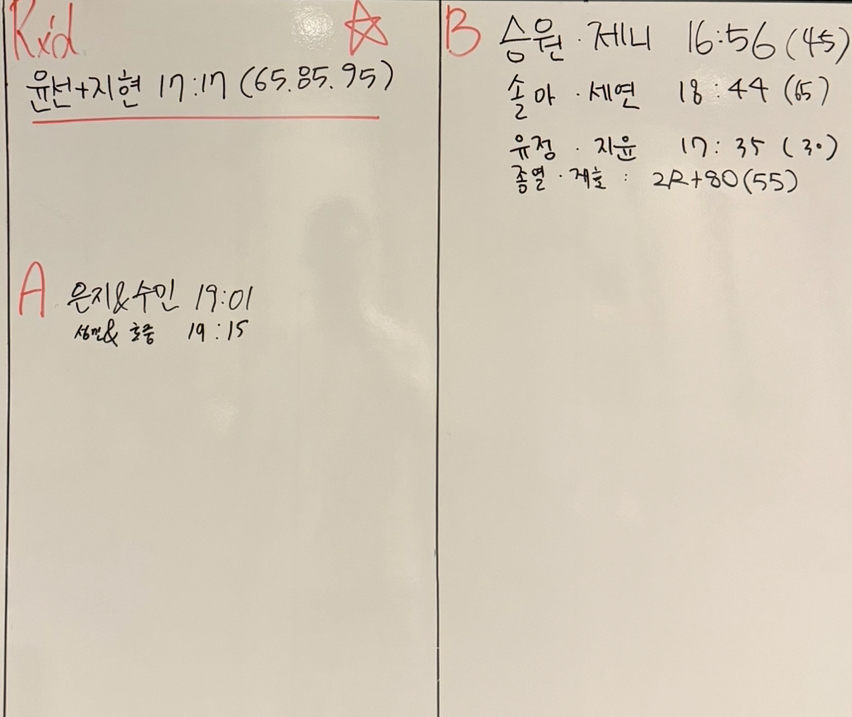 Rx'd
윤선+지현 17:17 (65.85.95)
A
은지&수민 19:01
& 호중 19:15
B
승원 · 제니 16:56 (45)
솔아 · 세연 18:44 (65)
유정 · 지윤 17:35 (30)
종열 · 재호 : 2R+80(55)